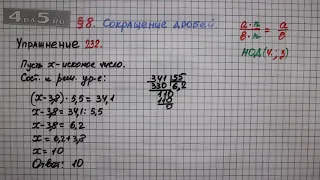 4 5.ru
§8. Сокращение дробей
Упражнение 232.
Пусть х-искомое число.
Сост. и реш. ур-е:
(х-3,8)·5,5=34,1
х-3,8=34,1:5,5
х-3,8=6,2
х=6,2+3,8
х=10
Ответ: 10
341 55
330 6,2
110
110
0
a·n = a
b·n b
НОД(